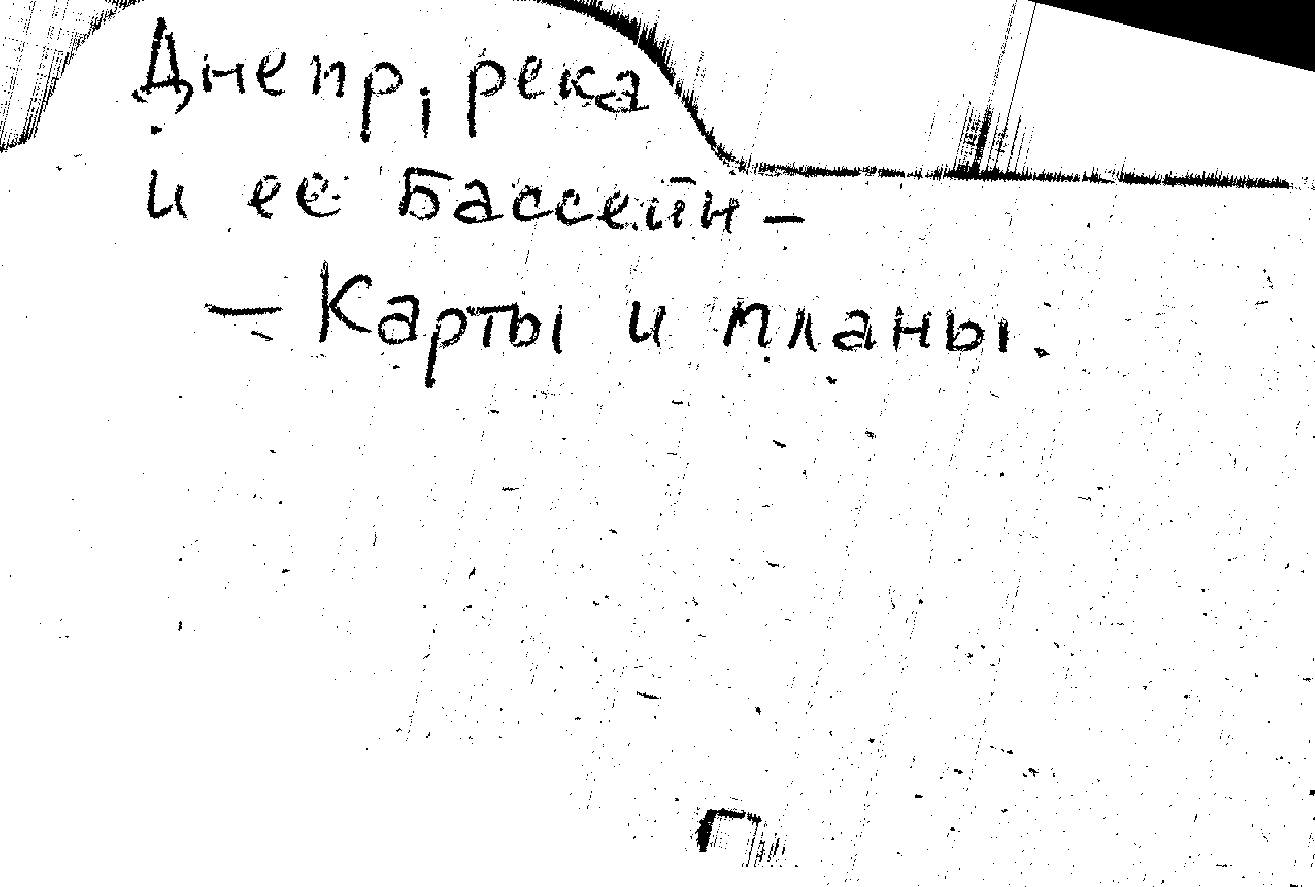 Днепр, река
и ее бассейн —
— Карты и планы.